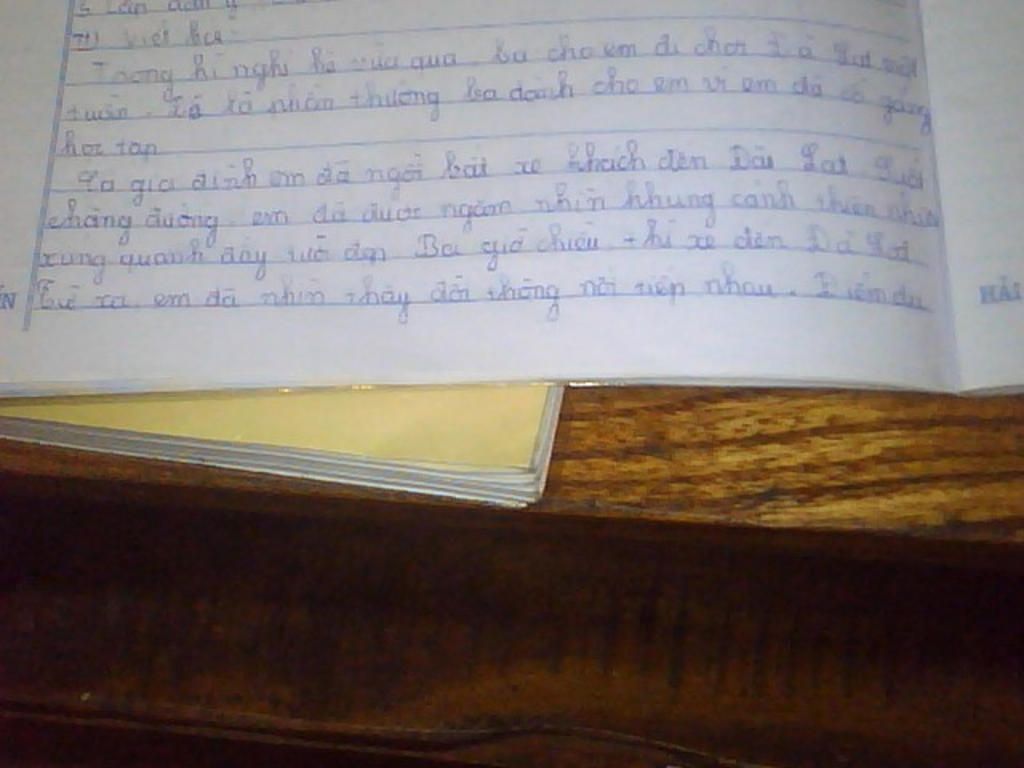 Viết bài
Trong kì nghỉ hè vừa qua, ba cho em đi chơi Đà Lạt một
tuần. Đó là phần thưởng ba dành cho em vì em đã cố gắng
học tập
Cả gia đình em đã ngồi xe khách đến Đà Lạt
chặng đường, em đã được ngắm nhìn khung cảnh thiên nhiên
xung quanh đầy tươi đẹp. Ba giờ chiều, thì xe đến Đà Lạt
Từ xa, em đã nhìn thấy đồi thông nối tiếp nhau. Điểm du